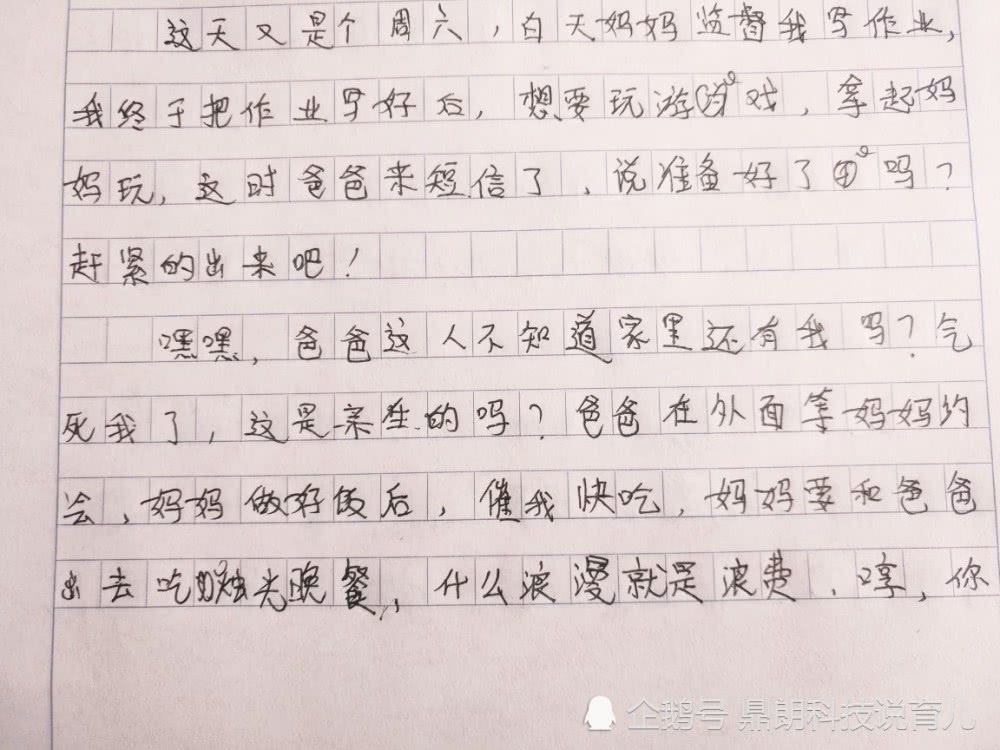 这天又是个周六，白天妈妈监督我写作业，
我终于把作业写好后，想要玩游戏，拿起妈
妈玩，这时爸爸来短信了，说准备好了吗？
赶紧的出来吧！
嘿嘿，爸爸这人不知道家里还有我吗？气
死我了，这是亲生的吗？爸爸在外面等妈妈约
会，妈妈做好饭后，催我快吃，妈妈要和爸爸
出去吃烛光晚餐，什么浪漫就是浪费，哼，你
企鹅号 鼎朗科技说育儿